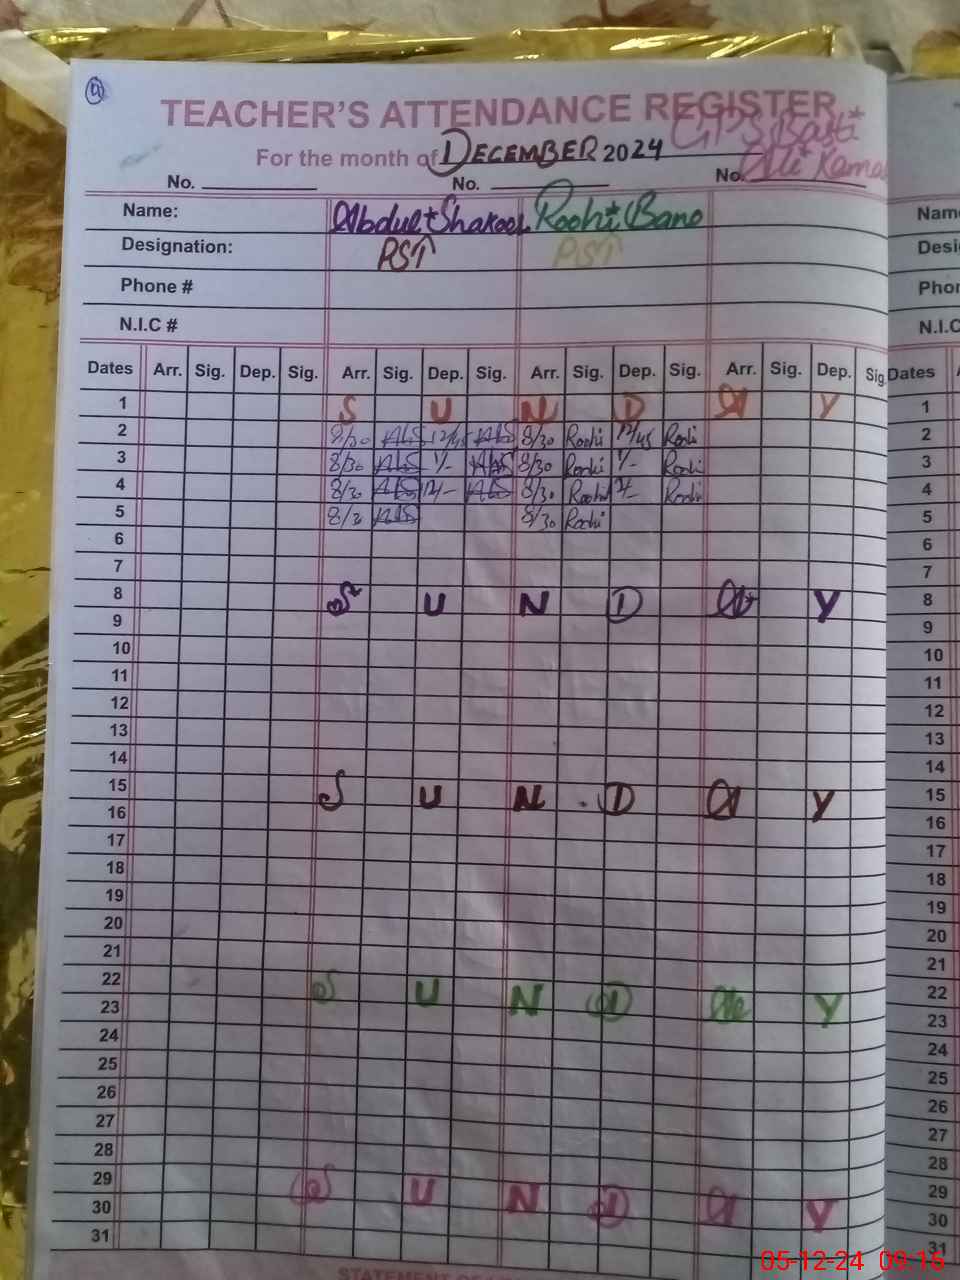 9
TEACHER'S ATTENDANCE REGISTER
GPS Batti
For the month of DECEMBER 2024
Ali Kamal
No. No. No.
Name: Abdul Shakoor Roohi Bano
Designation: PST PST
Phone #
N.I.C #
Dates Arr. Sig. Dep. Sig. Arr. Sig. Dep. Sig. Arr. Sig. Dep. Sig. Arr. Sig. Dep. Sig.
1 S U N D A Y
2 8/30 12/45 8/30 Roohi 12/45 Roohi
3 8/30 1/- 8/30 Roohi 1/- Roohi
4 8/30 12/- 8/30 Roohi Roohi
5 8/30 8/30 Roohi
6
7
8 S U N D A Y
9
10
11
12
13
14
15 S U N D A Y
16
17
18
19
20
21
22 S U N D A Y
23
24
25
26
27
28
29 S U N D A Y
30
31
Dates
1
2
3
4
5
6
7
8
9
10
11
12
13
14
15
16
17
18
19
20
21
22
23
24
25
26
27
28
29
30
31
05-12-24 09:16